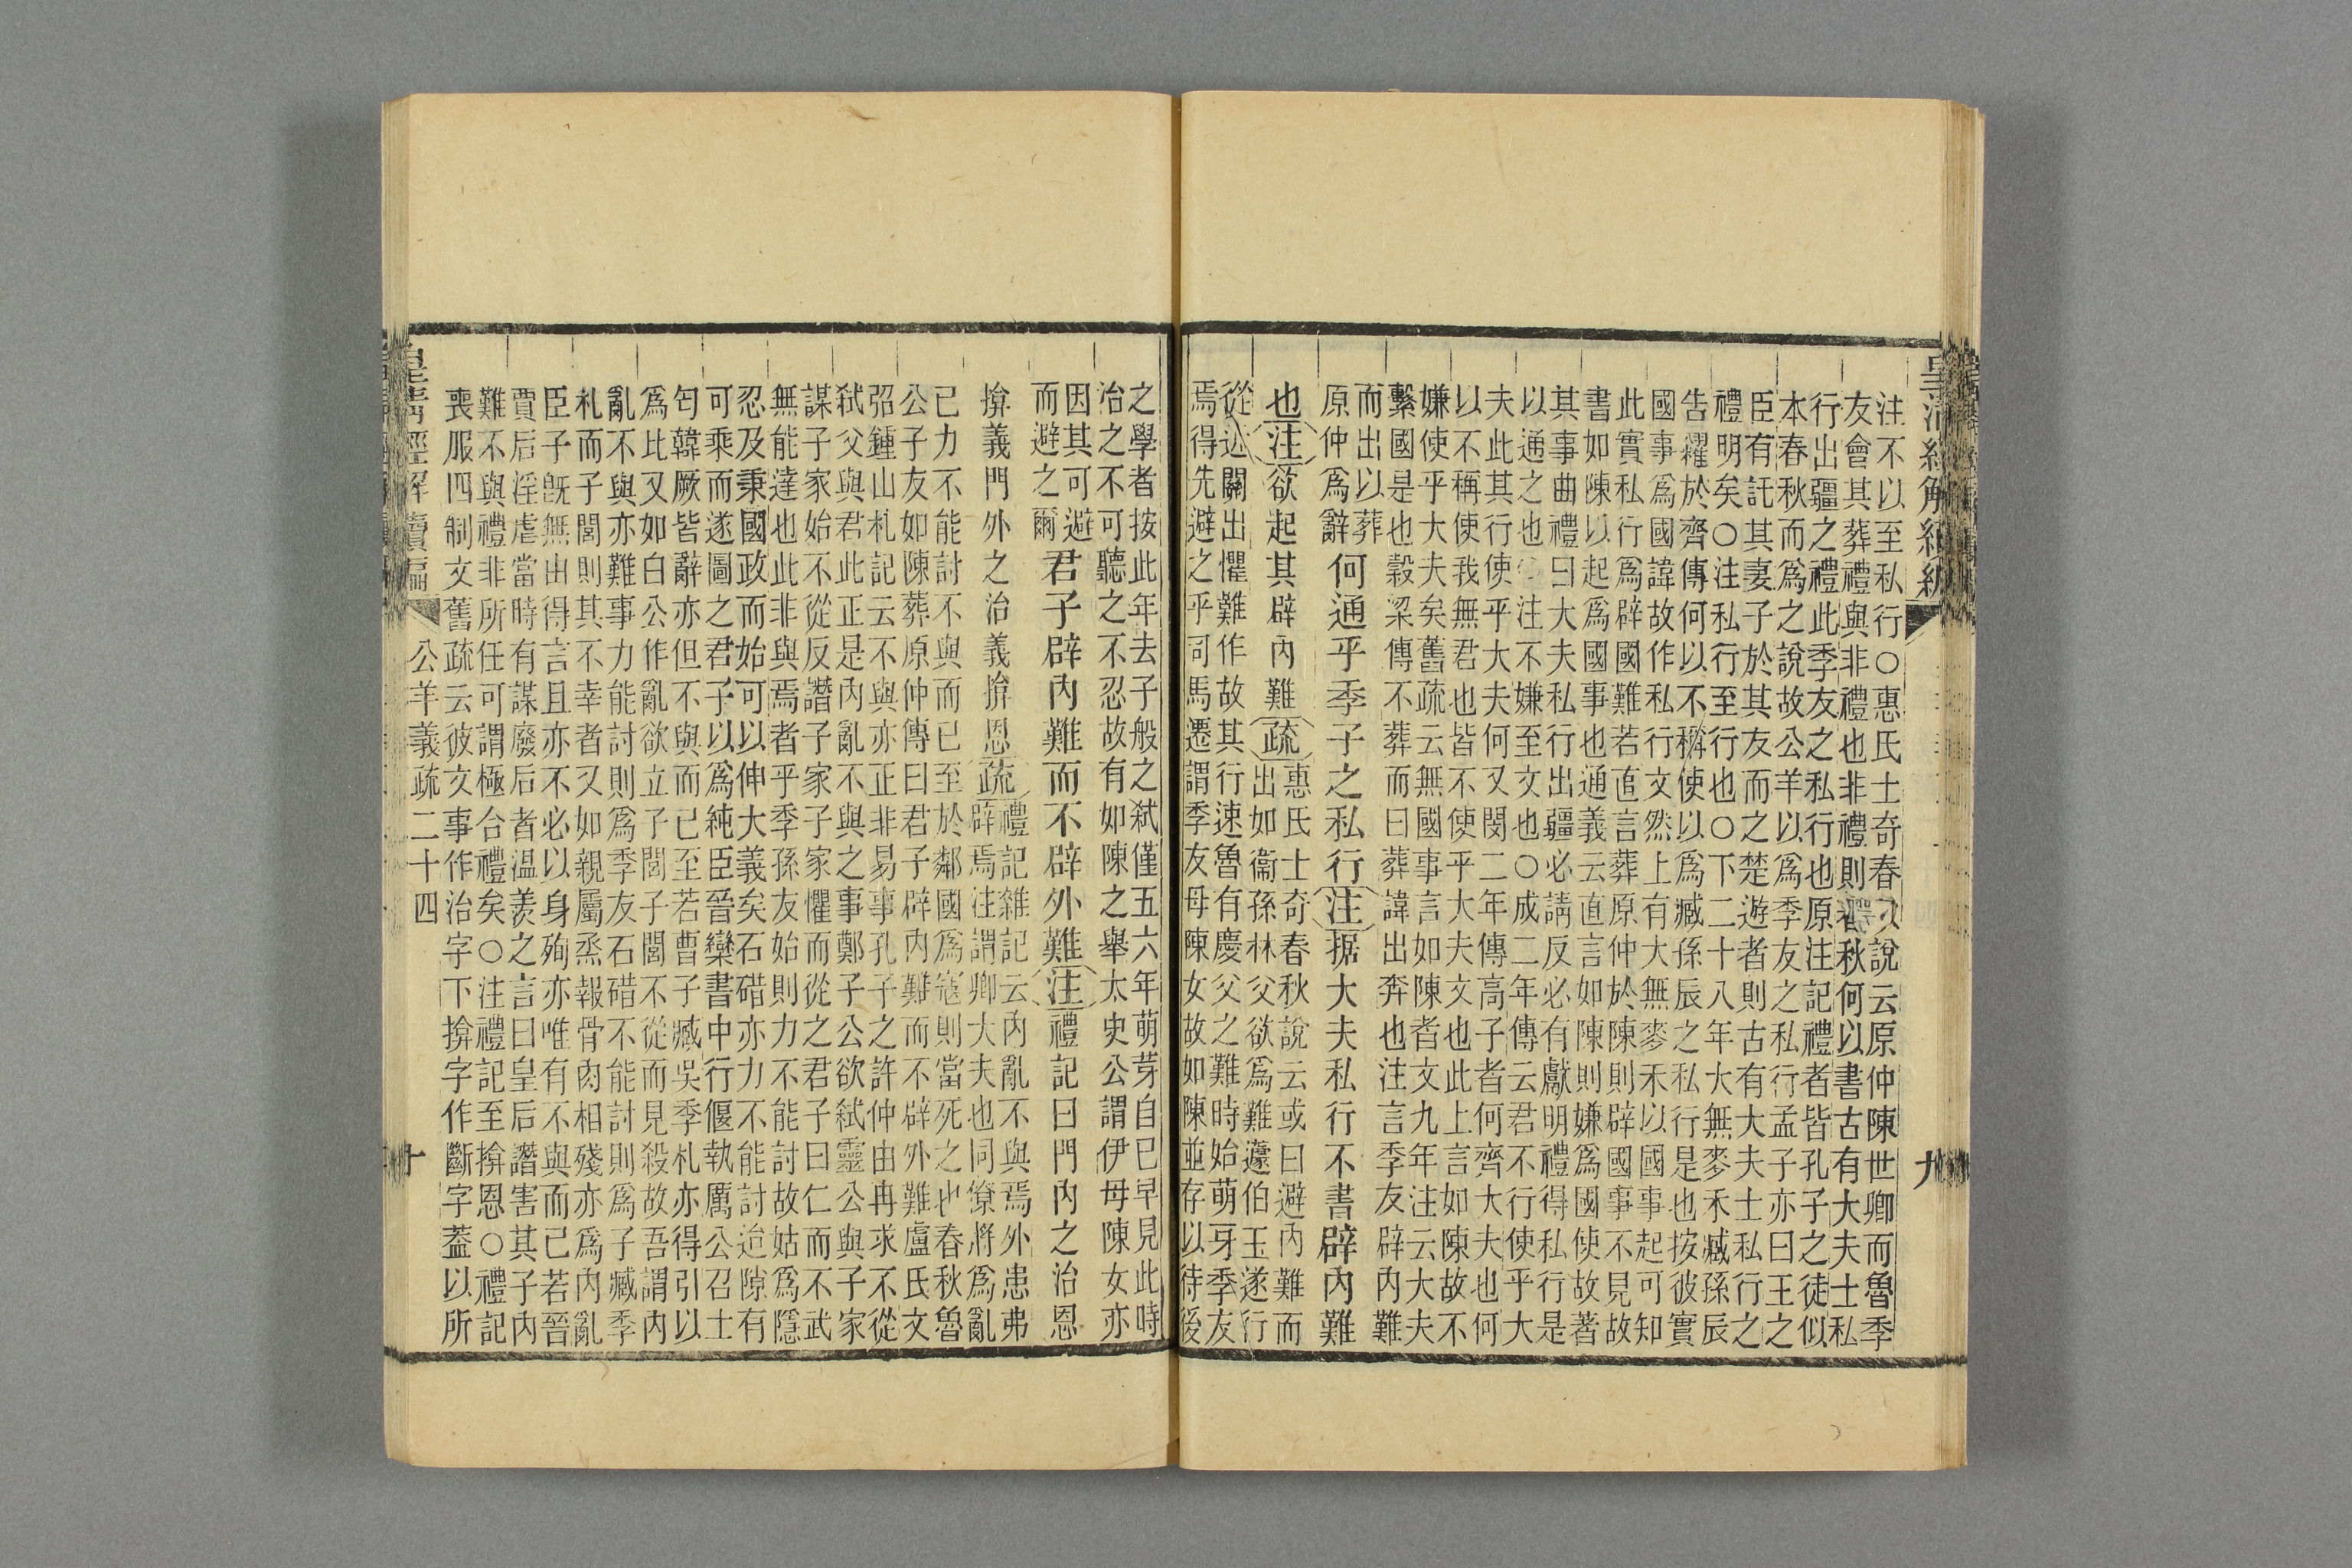 注不以至私行○惠氏士奇春秋說云原仲陳世卿而魯季
友會其葬禮與非禮也非禮則春秋何以書古有大夫士私
行出疆之禮此季友之私行也原注記禮者皆孔子之徒似
本春秋而爲之說故公羊以爲季友之私行孟子亦曰王之
臣有託其妻子於其友而之楚遊者則古有大夫士私行之
禮明矣○注私行至行也○下二十八年大無麥禾臧孫辰
告糴於齊傳何以不稱使以爲臧孫辰之私行是也按彼實
國事爲國諱故作私行文然上有大無麥禾以國事起可知
此實私行爲辟國難若直言葬原仲於陳則辟國事不見故
書如陳以起爲國事也通義云直言如陳則嫌爲國使故著
其事曲禮曰大夫私行出疆必請反必有獻明禮得私行是
以通之也 注不嫌至文也○成二年傳云君不行使乎大
夫此其行使乎大夫何又閔二年傳高子者何齊大夫也何
以不稱使我無君也皆不使乎大夫文也此上言如陳故不
嫌使乎大夫矣舊疏云無國事言如陳者文九年注云大夫
繫國是也穀梁傳不葬而曰葬諱出奔也注言季友辟內難
而出以葬
原仲爲辭
何通乎季子之私行注据大夫私行不書辟內難
也注欲起其辟內難疏
惠氏士奇春秋說云或曰避內難而
出如衞孫林父欲爲難蘧伯玉遂行
從近關出懼難作故其行速魯有慶父之難時始萌牙季友
焉得先避之乎司馬遷謂季友母陳女故如陳並存以待後
之學者按此年去子般之弒僅五六年萌芽自已早見此時
治之不可聽之不忍故有如陳之舉太史公謂伊母陳女亦
因其可避
而避之爾
君子辟內難而不辟外難注禮記曰門內之治恩
揜義門外之治義揜恩疏
禮記雜記云內亂不與焉外患弗
辟焉注謂卿大夫也同僚將爲亂
已力不能討不與而已至於鄰國爲寇則當死之也春秋魯
公子友如陳葬原仲傳曰君子辟內難而不辟外難盧氏文
弨鍾山札記云不與亦正非易事孔子之許仲由冉求不從
弒父與君此正是內亂不與之事鄭子公欲弒靈公與子家
謀子家始不從反譖子家子家懼而從之君子曰仁而不武
無能達也此非與焉者乎季孫友始則力不能討故姑爲隱
忍及秉國政而始可以伸大義矣石碏亦力不能討迨隙有
可乘而遂圖之君子以爲純臣晉欒書中行偃執厲公召士
匄韓厥皆辭亦但不與而已至若曹子臧吳季札亦得引以
爲比又如白公作亂欲立子閭子閭不從而見殺故吾謂內
亂不與亦難事力能討則爲季友石碏不能討則爲子臧季
札而子閭則其不幸者又如親屬烝報骨肉相殘亦爲內亂
臣子旣無由得言且亦不必以身殉亦唯有不與而已若晉
賈后淫虐當時有謀廢后者溫羨之言曰皇后譖害其子內
難不與禮非所任可謂極合禮矣○注禮記至揜恩○禮記
喪服四制文舊疏云彼文事作治字下揜字作斷字蓋以所
皇清經解續編
公羊義疏二十四
九
十